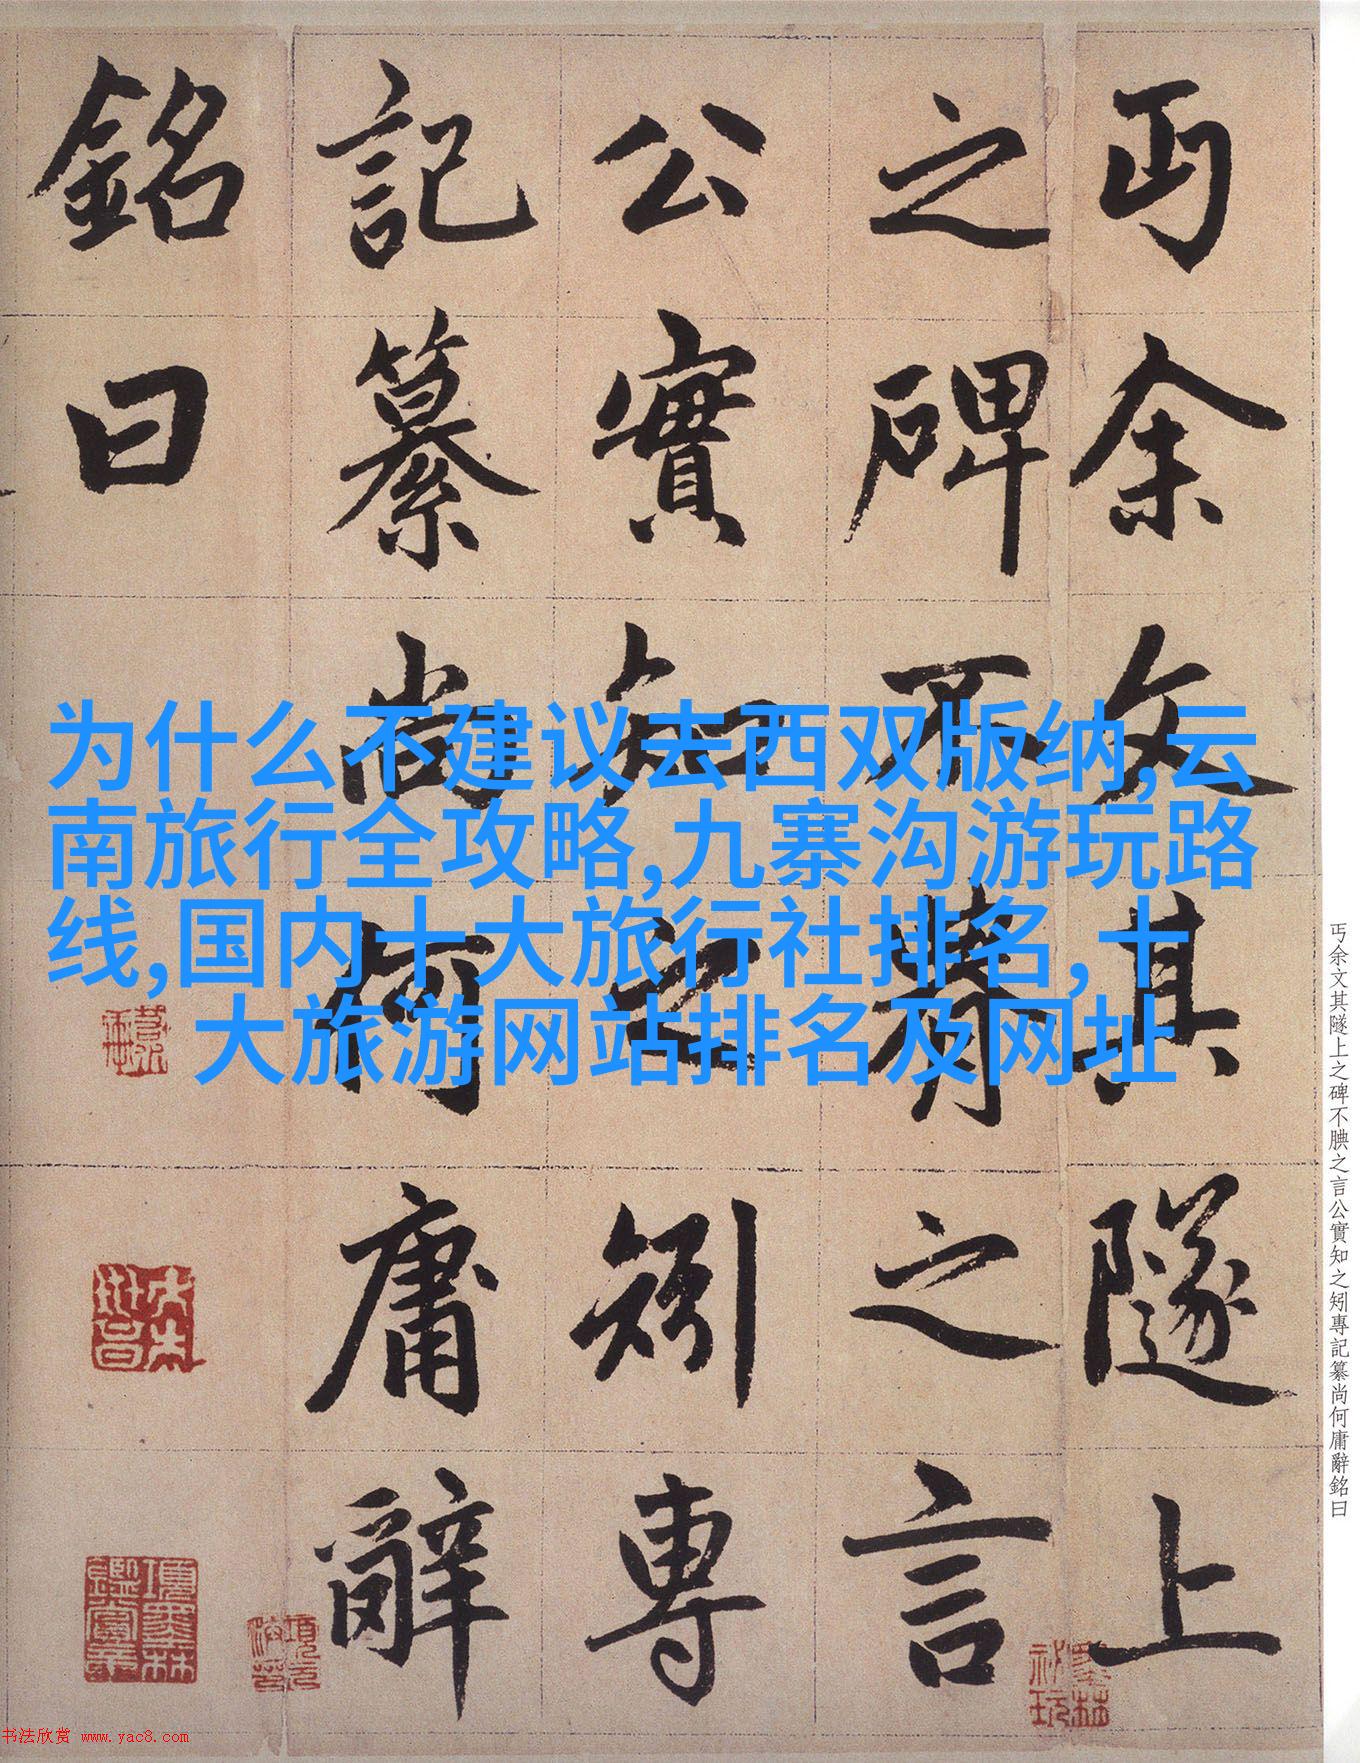 丏余文其隧上
之碑不腆之言
公實知之矧專
記纂尚何庸辭
銘曰
为什么不建议去西双版纳,云
南旅行全攻略,九寨沟游玩路
线,国内十大旅行社排名,十
大旅游网站排名及网址
丐余文其隧上之碑不腆之言公實知之矧專記纂尚何庸辭銘曰
书法欣赏 www.yac8.com